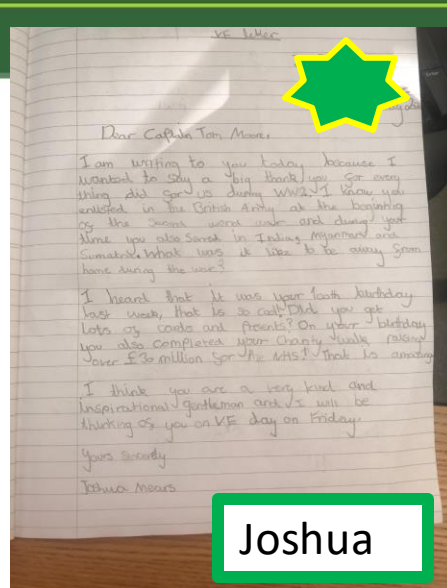 VE letter
Dear Captain Tom Moore,
I am writing to you today because I
wanted to say a big thank you for every
thing did for us during WW2. I know you
enlisted in the British Army at the beginning
of the Second world war and during your
time you also Served in India, Myanmar and
Sumatra. What was it like to be away from
home during the war?
I heard that it was your 100th birthday
last week, that is so cool! Did you get
Lots of cards and presents? On your birthday
you also completed your Charity walk, raising
over £30 million for the NHS! That is amazing
I think you are a very kind and
inspirational gentleman and I will be
thinking of you on VE day on Friday.
yours sincerely
Joshua Mears
Joshua